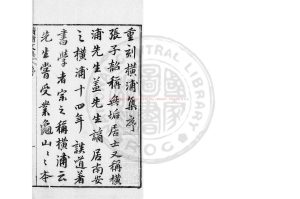 重刻橫浦集序
張子韶稱無垢居士又稱橫
浦先生盖先生謫居南安
之橫浦十四年談道著
書學者宗之稱橫浦云
先生嘗受業龜山〻本
CENTRAL LIBRARY